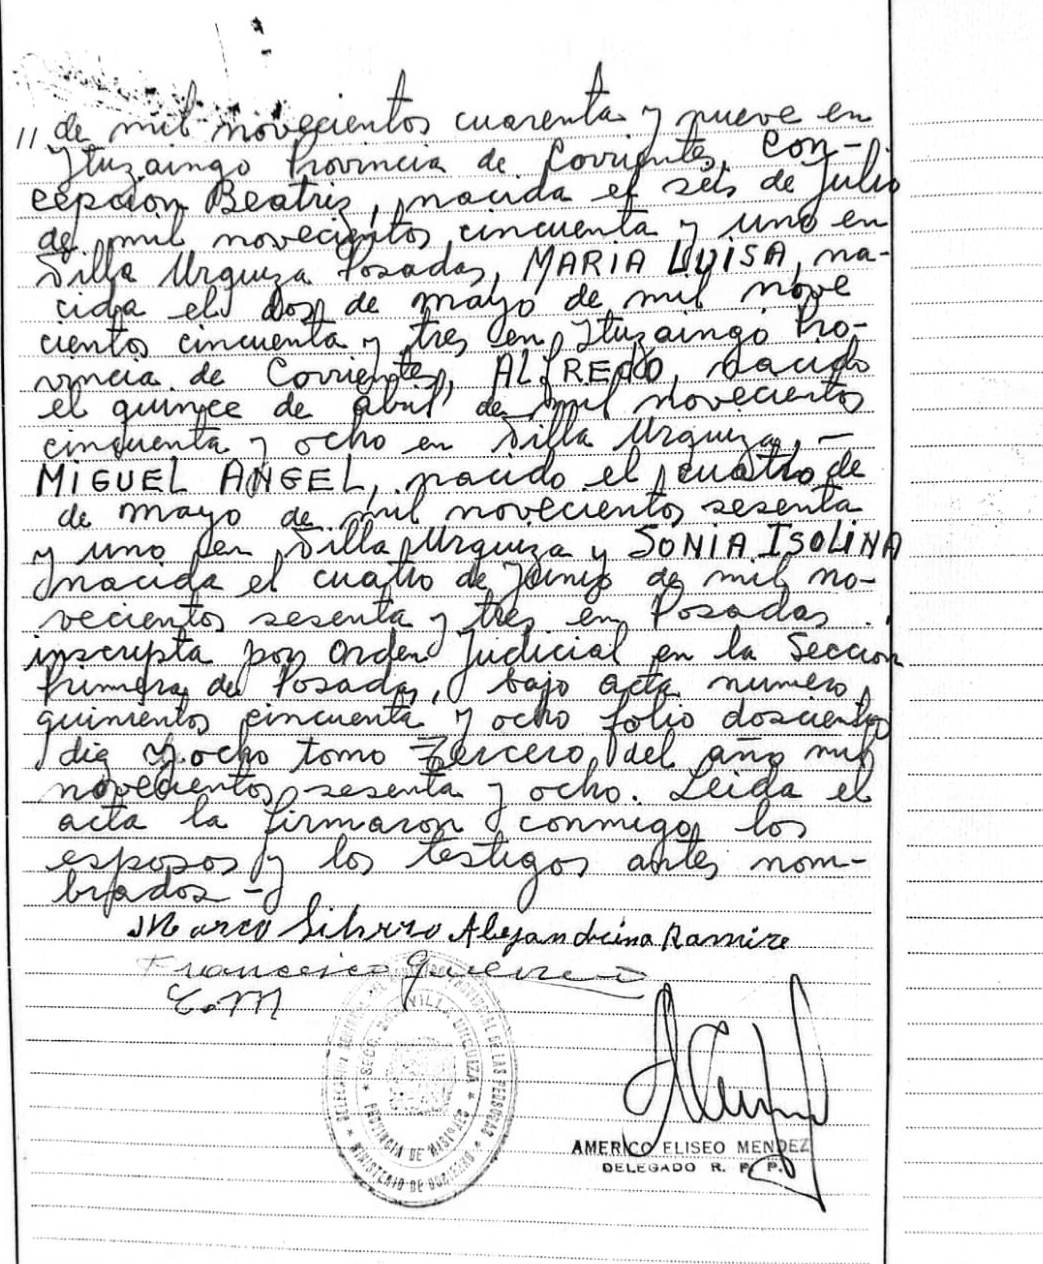 // de mil novecientos cuarenta y nueve en
Ituzaingo Provincia de Corrientes, Con-
cepcion Beatriz, nacida el seis de Julio
de mil novecientos cincuenta y uno en
Villa Urquiza Posadas, MARIA LUISA, na-
cida el dos de mayo de mil nove
cientos cincuenta y tres en Ituzaingo Pro-
vincia de Corrientes, ALFREDO, nacido
el quince de abril de mil novecientos
cincuenta y ocho en Villa Urquiza, -
MIGUEL ANGEL, nacido el cuatro de
de mayo de mil novecientos sesenta
y uno en Villa Urquiza y SONIA ISOLINA
nacida el cuatro de Junio de mil no-
vecientos sesenta y tres en Posadas
inscripta por Orden Judicial en la Seccion
Primera de Posadas, bajo acta numero
quinientos cincuenta y ocho folio doscientos
diez y ocho tomo Tercero del año mil
novecientos sesenta y ocho. Leida el
acta la firmaron conmigo los
esposos y los testigos antes nom-
brados -
Marco Alejandrina Ramire
Francisco
E.M
SECC. VILLA URQUIZA
PROVINCIA DE MISIONES
PROVINCIAL DE LAS PERSONAS
MINISTERIO DE GOBIERNO
AMERICO ELISEO MENDEZ
DELEGADO R. P. P.